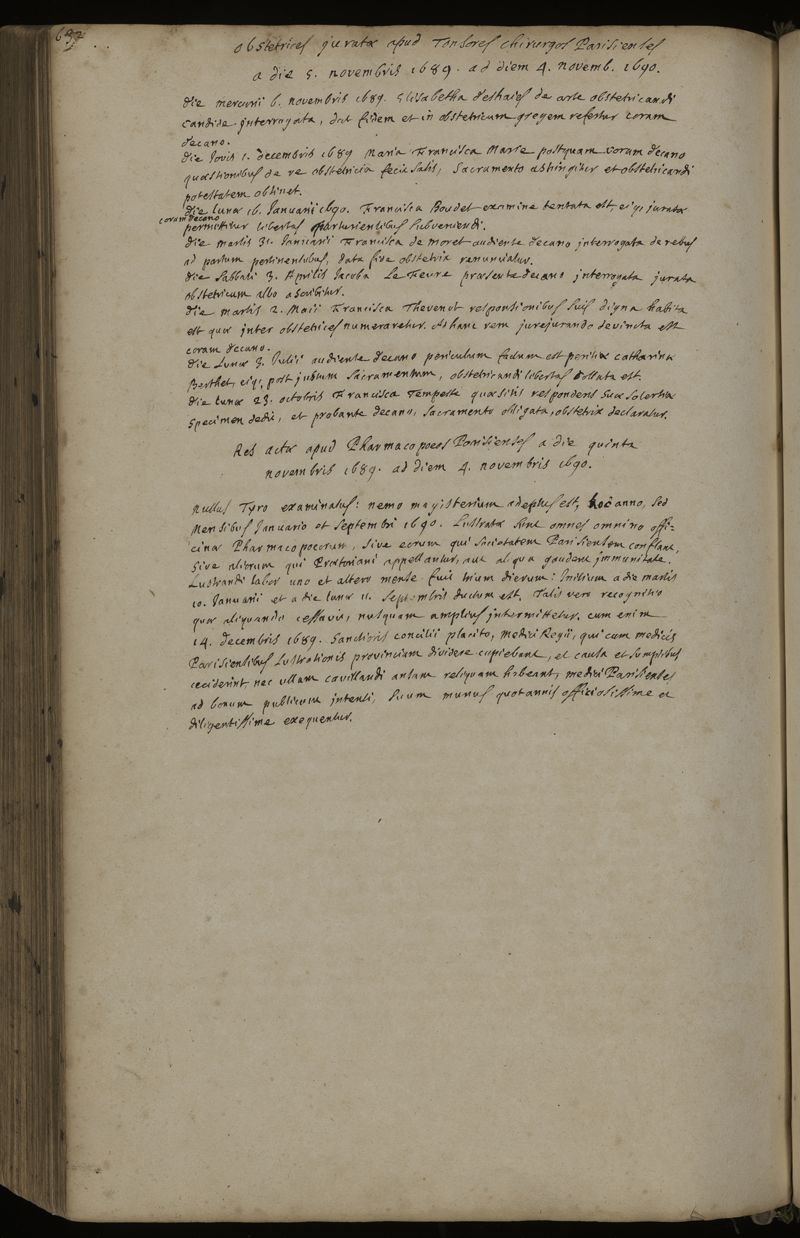 obstetrices juratæ apud Tonsores chirurgos Parisienses
a die 5. novembris 1689. ad diem 4. novemb. 1690.
die mercurii 6. novembris 1689. Elisabetha deshaies de arte obstetricandi
candide interrogata, dat fidem et in obstetricum gregem refertur coram
decano.
die Jovis 1. decembris 1689 Maria Francisca Marie postquam coram decano
quæstionibus de re obstetricia fecit satis, Sacramento astringitur et obstetricandi
potestatem obtinet.
die lunæ 16. Januarii 1690. Francisca Boudet examine tentata est, eiq; juratæ
coram decano
permittitur libertas parturientibus subveniendi.
die martis 31. Januarii Francisca de moret audiente decano interrogata de rebus
ad partum pertinentibus, data fide obstetrix renunciatur.
die Sabbati 3. Aprilis Jacoba Le Fevre præsente decano interrogata jurata
obstetricum albo ascribitur.
die martis 2. Maii Francisca Thevenot responsionibus suis digna habita
est quæ inter obstetrices numeraretur. ob hanc rem jurejurando devincta est
coram decano.
die Lunæ 3. Julii audiente decano periculum factum est peritiæ catharinæ
Berthet, eiq; post justum Sacramentum, obstetricandi libertas collata est.
die lunæ 23. octobris Francisca Tempeste quæsitis respondens suæ solertiæ
specimen dedit, et probante decano, sacramento obligata, obstetrix declaratur.
Res actæ apud Pharmacopoeos Parisienses a die quinta
novembris 1689. ad diem 4. novembris 1690.
Nullus Tyro examinatus: nemo magisterium adeptus est, hoc anno, sed
Mensibus Januario et Septembri 1690. Lustratæ sunt omnes omnino offi-
cinæ Pharmacopoeorum, sive eorum qui societatem Parisiensem conflant,
sive aliorum qui Prætoriani appellantur, aut aliqua gaudent immunitate.
Lustrandi labor uno et altero mense fuit trium dierum: Initium a die martis
10. Januarii et a die lunæ 11. Septembris ductum est. Talis vero recognitio
quæ aliquando cessavit, nusquam amplius intermittetur. cum enim
14. decembris 1689. Sanctioris concilii placito, medici Regii, qui cum medicis
Parisiensibus Lustrationis provinciam dividere cupiebant, et causa et sumptibus
ceciderint, nec ullam cavillandi ansam reliquam habeant, medici Parisienses
ad bonum publicum intenti, suum munus quotannis officiosissime ac
diligentissime exequentur.